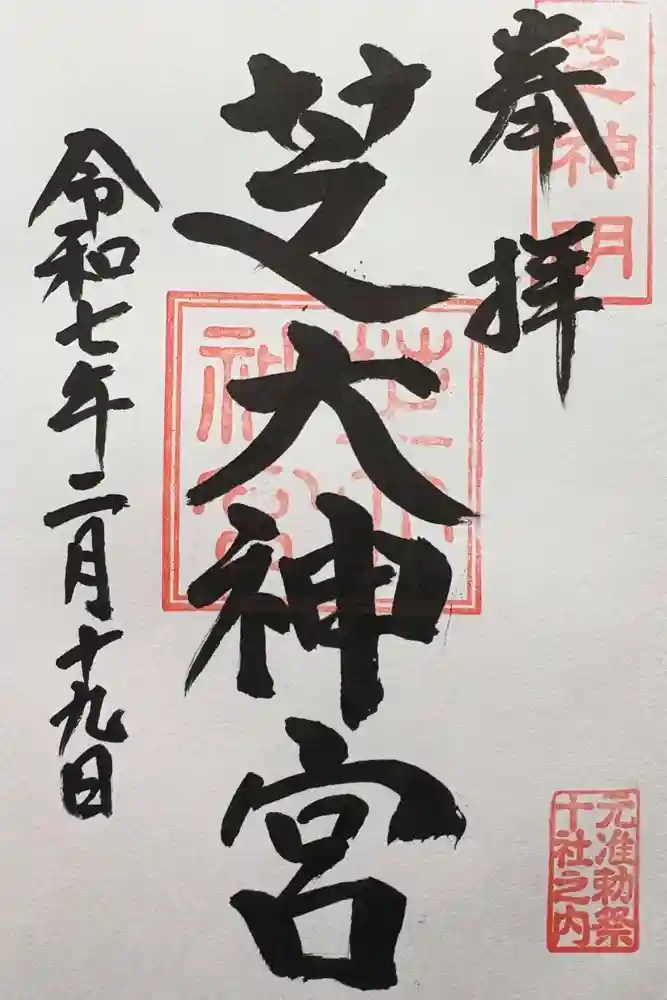 奉拝
芝神明
芝大神宮
令和七年二月十九日
元准勅祭
十社之内